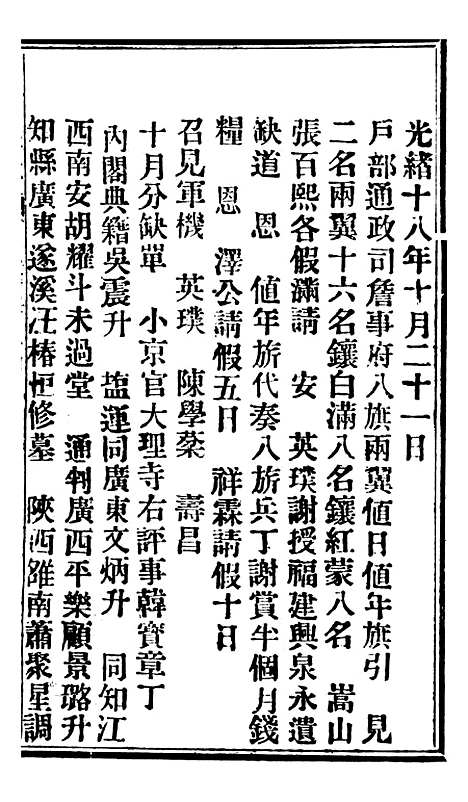 光緒十八年十月二十一日
戶部通政司詹事府八旂兩翼値日値年旗引　見
二名兩翼十六名鑲白滿八名鑲紅蒙八名　嵩山
張百熙各假滿請　安　英璞謝授福建興泉永遺
缺道　恩　値年旂代奏八旂兵丁謝賞半個月錢
糧　恩　澤公請假五日　祥霖請假十日
召見軍機　英璞　陳學棻　壽昌
十月分缺單　小京官大理寺右評事韓寶章丁
內閣典籍吳震升　塩運同廣東文炳升　同知江
西南安胡耀斗未過堂　通判廣西平樂顧景璐升
知縣廣東遂溪汪椿恒修墓　陝西雒南蕭聚星調